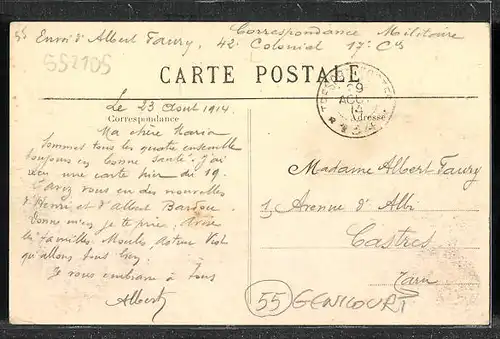 Envoi d'Albert Faury, 42e Colonial 17e Cie
Correspondance Militaire
552105
CARTE POSTALE
29
AOU
14
Correspondance
Adresse
Le 23 Aout 1914.
Ma chère Maria
Sommes tous les quatre ensemble
toujours en bonne santé. J'ai
reçu une carte hier du 19.
Savez vous en des nouvelles
d'Henri et d'Albert Bardou
Donne m'en je te prie. Avise
les familles
qu'allons tous bien.
Je vous embrasse à tous
Albert
Madame Albert Faury
1, Avenue d'Albi
Castres
Tarn
55 GENICOURT